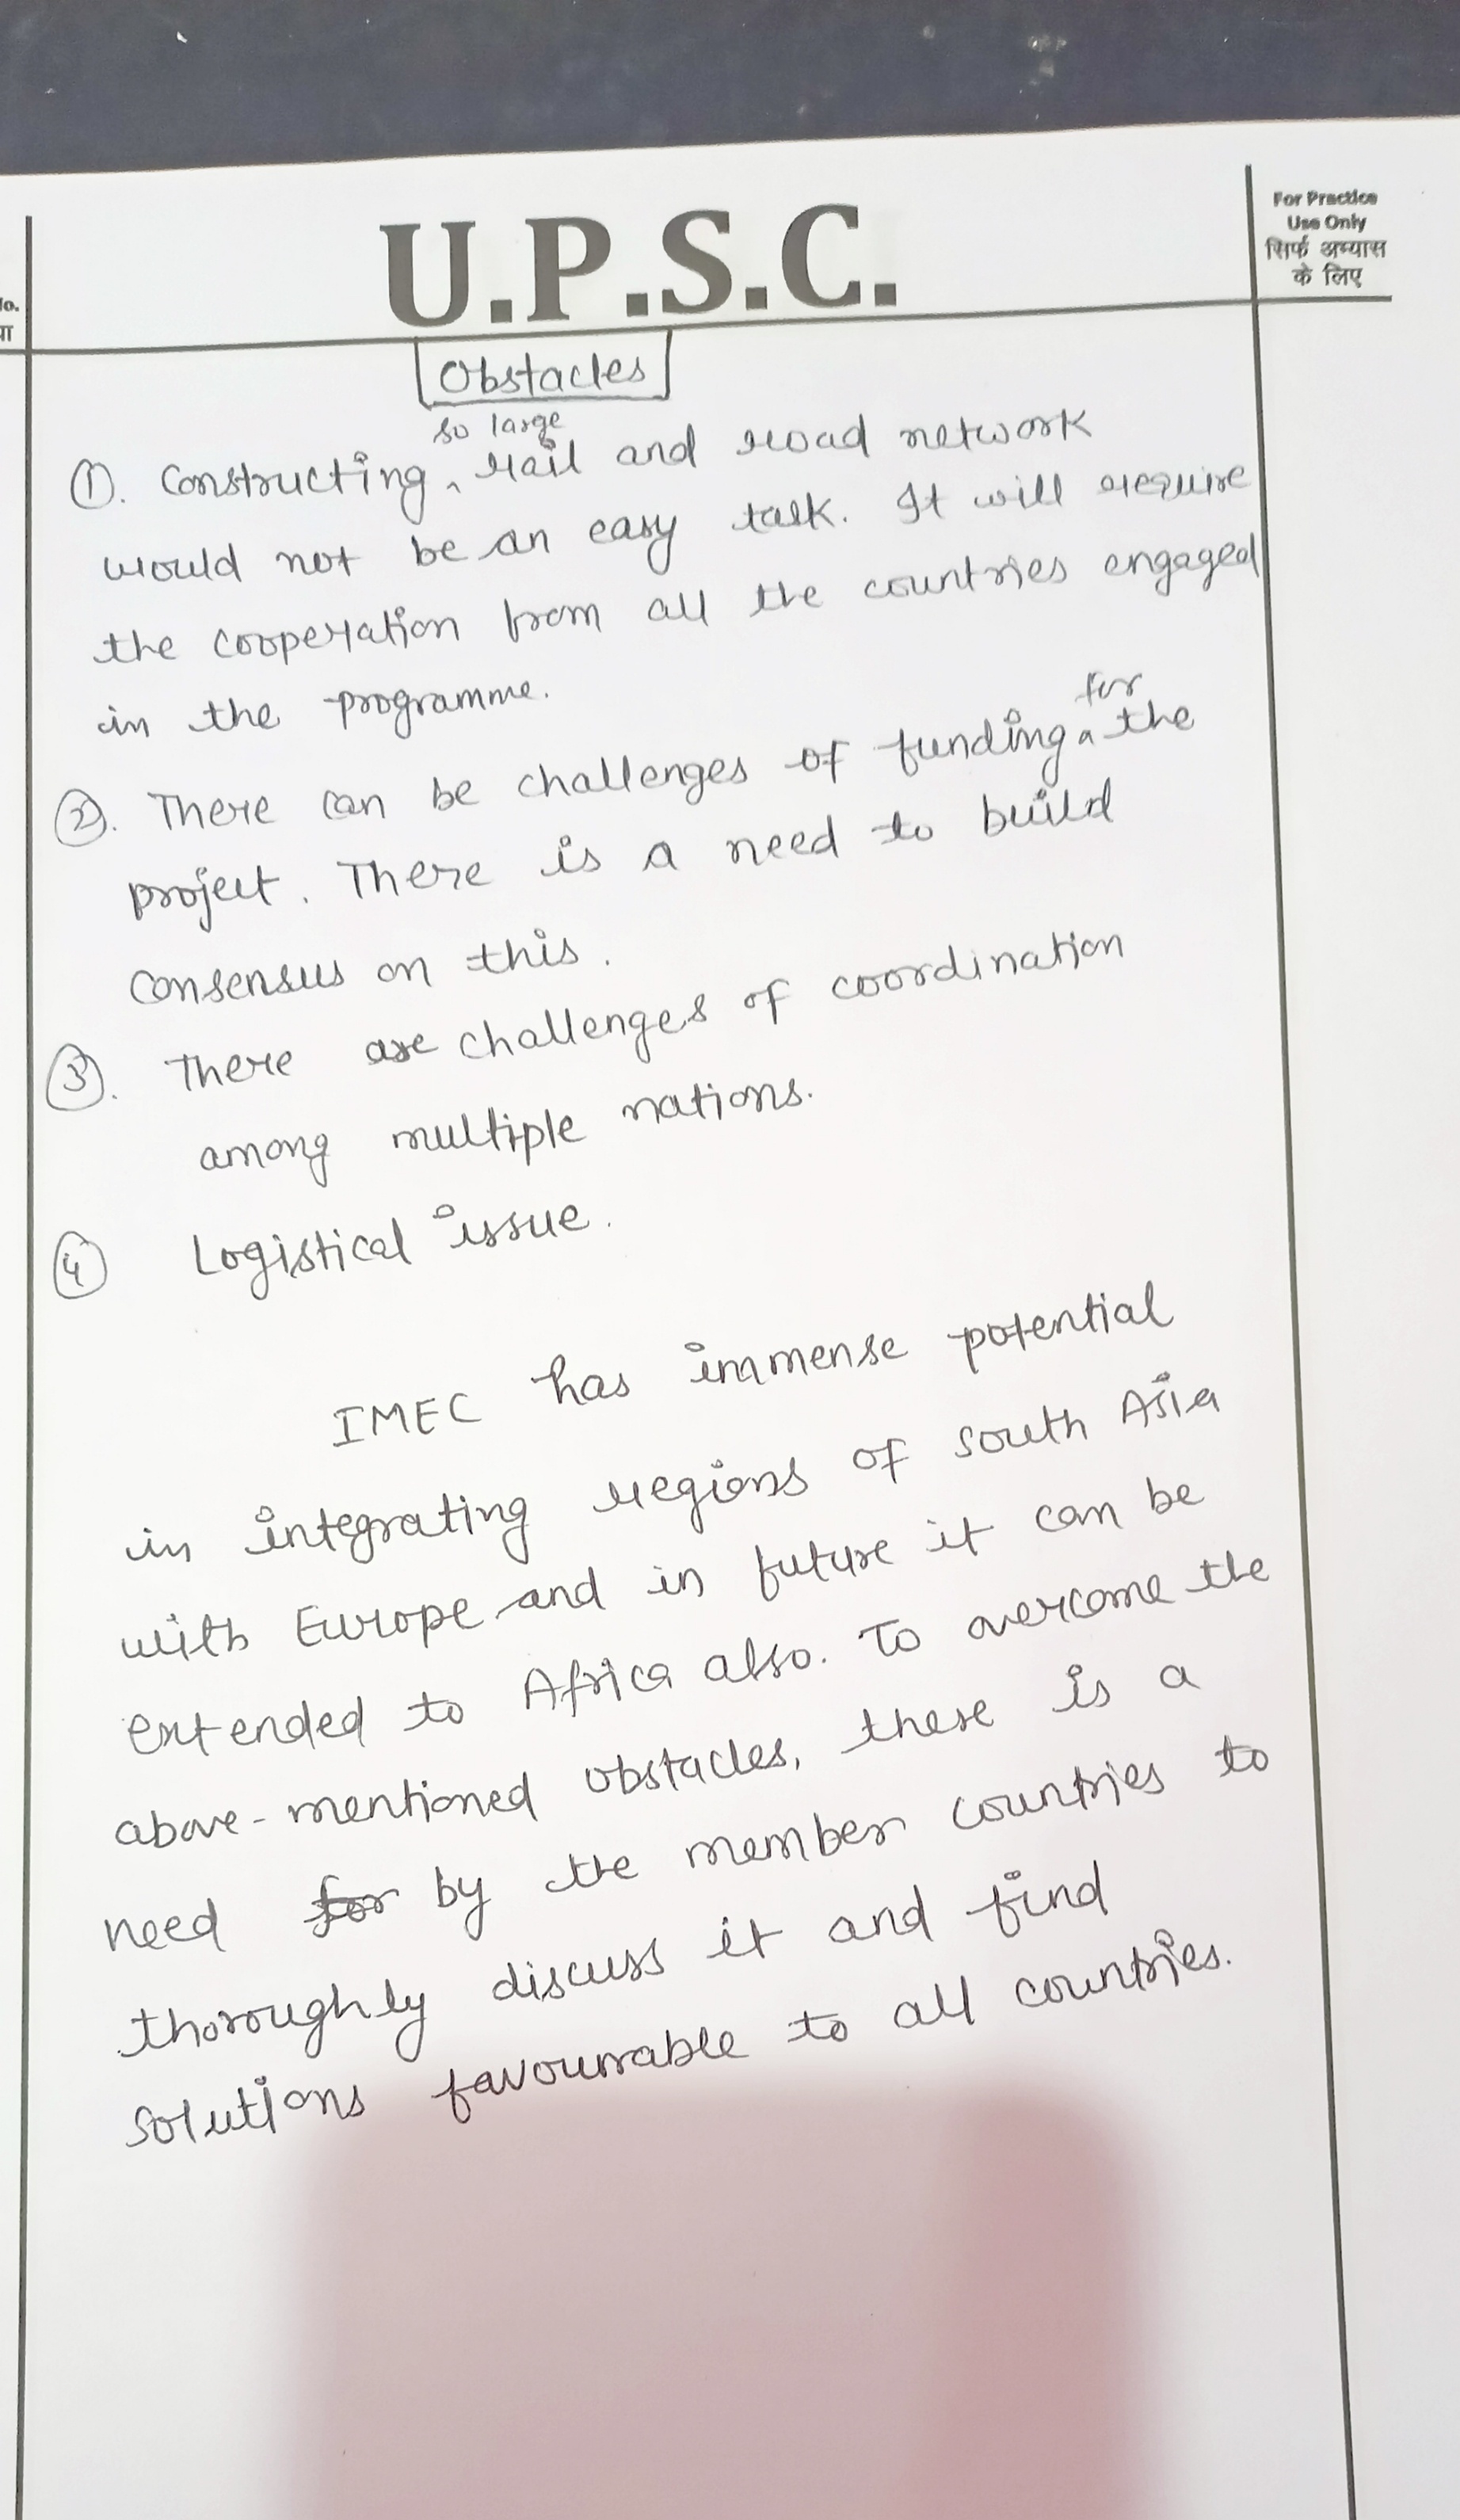 U.P.S.C.
For Practice
Use Only
सिर्फ अभ्यास
के लिए
No.
Obstacles
so large
①. Constructing ‸ rail and road network
would not be an easy task. It will require
the cooperation from all the countries engaged
in the programme.
for
②. There can be challenges of funding ‸ the
project. There is a need to build
consensus on this.
③. There are challenges of coordination
among multiple nations.
④ Logistical issue.
IMEC has immense potential
in integrating regions of south Asia
with Europe and in future it can be
extended to Africa also. To overcome the
above-mentioned obstacles, there is a
need for by the member countries to
thoroughly discuss it and find
solutions favourable to all countries.